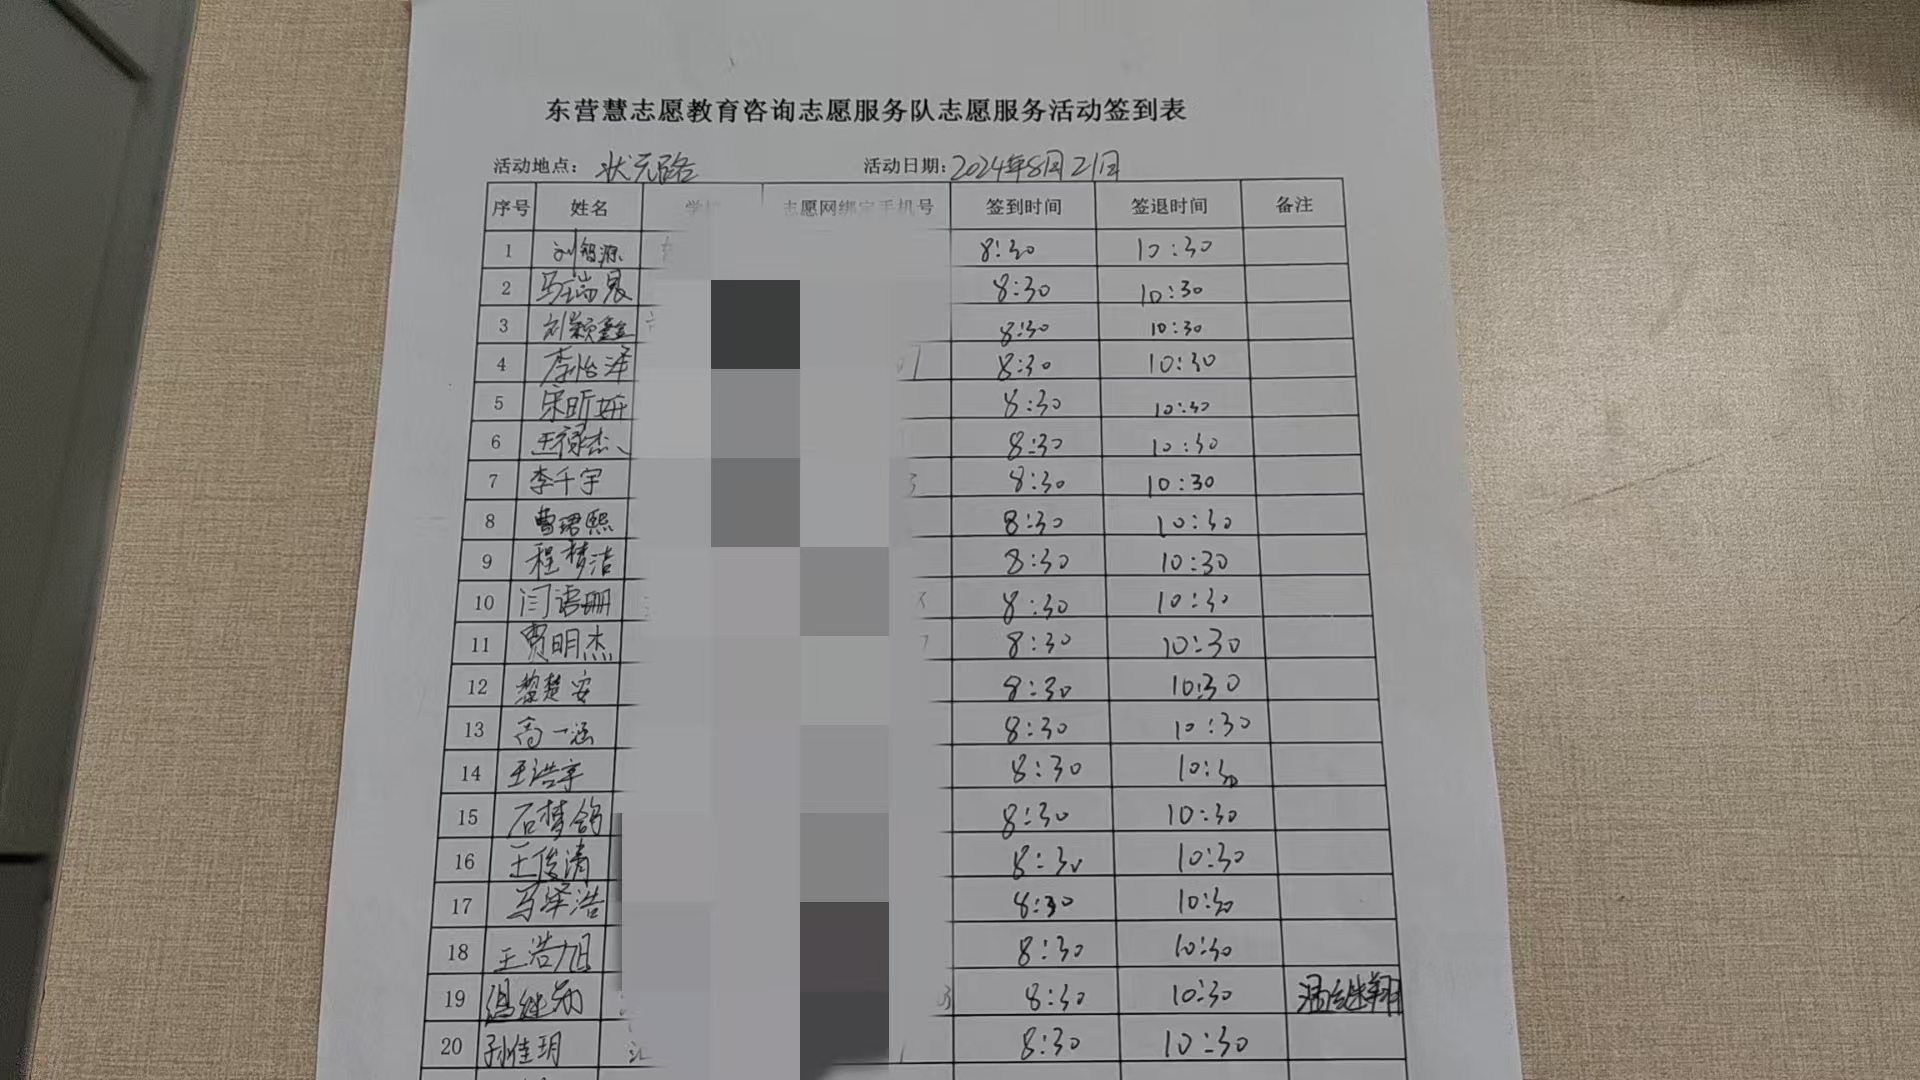 东营慧志愿教育咨询志愿服务队志愿服务活动签到表
活动地点: 状元路 活动日期: 2024年8月21日
序号 姓名 学校 志愿网绑定手机号 签到时间 签退时间 备注
1 刘智源 8:30 10:30
2 马瑞晨 8:30 10:30
3 刘颖鑫 8:30 10:30
4 李怡泽 8:30 10:30
5 宋昕妍 8:30 10:30
6 王禄杰 8:30 10:30
7 李千宇 8:30 10:30
8 曹珺熙 8:30 10:30
9 程梦洁 8:30 10:30
10 闫语珊 8:30 10:30
11 贾明杰 8:30 10:30
12 黎楚安 8:30 10:30
13 高一涵 8:30 10:30
14 王浩宇 8:30 10:30
15 石梦鸽 8:30 10:30
16 王俊清 8:30 10:30
17 马泽浩 8:30 10:30
18 王浩旭 8:30 10:30
19 温继翔 8:30 10:30 温继翔
20 孙佳玥 8:30 10:30